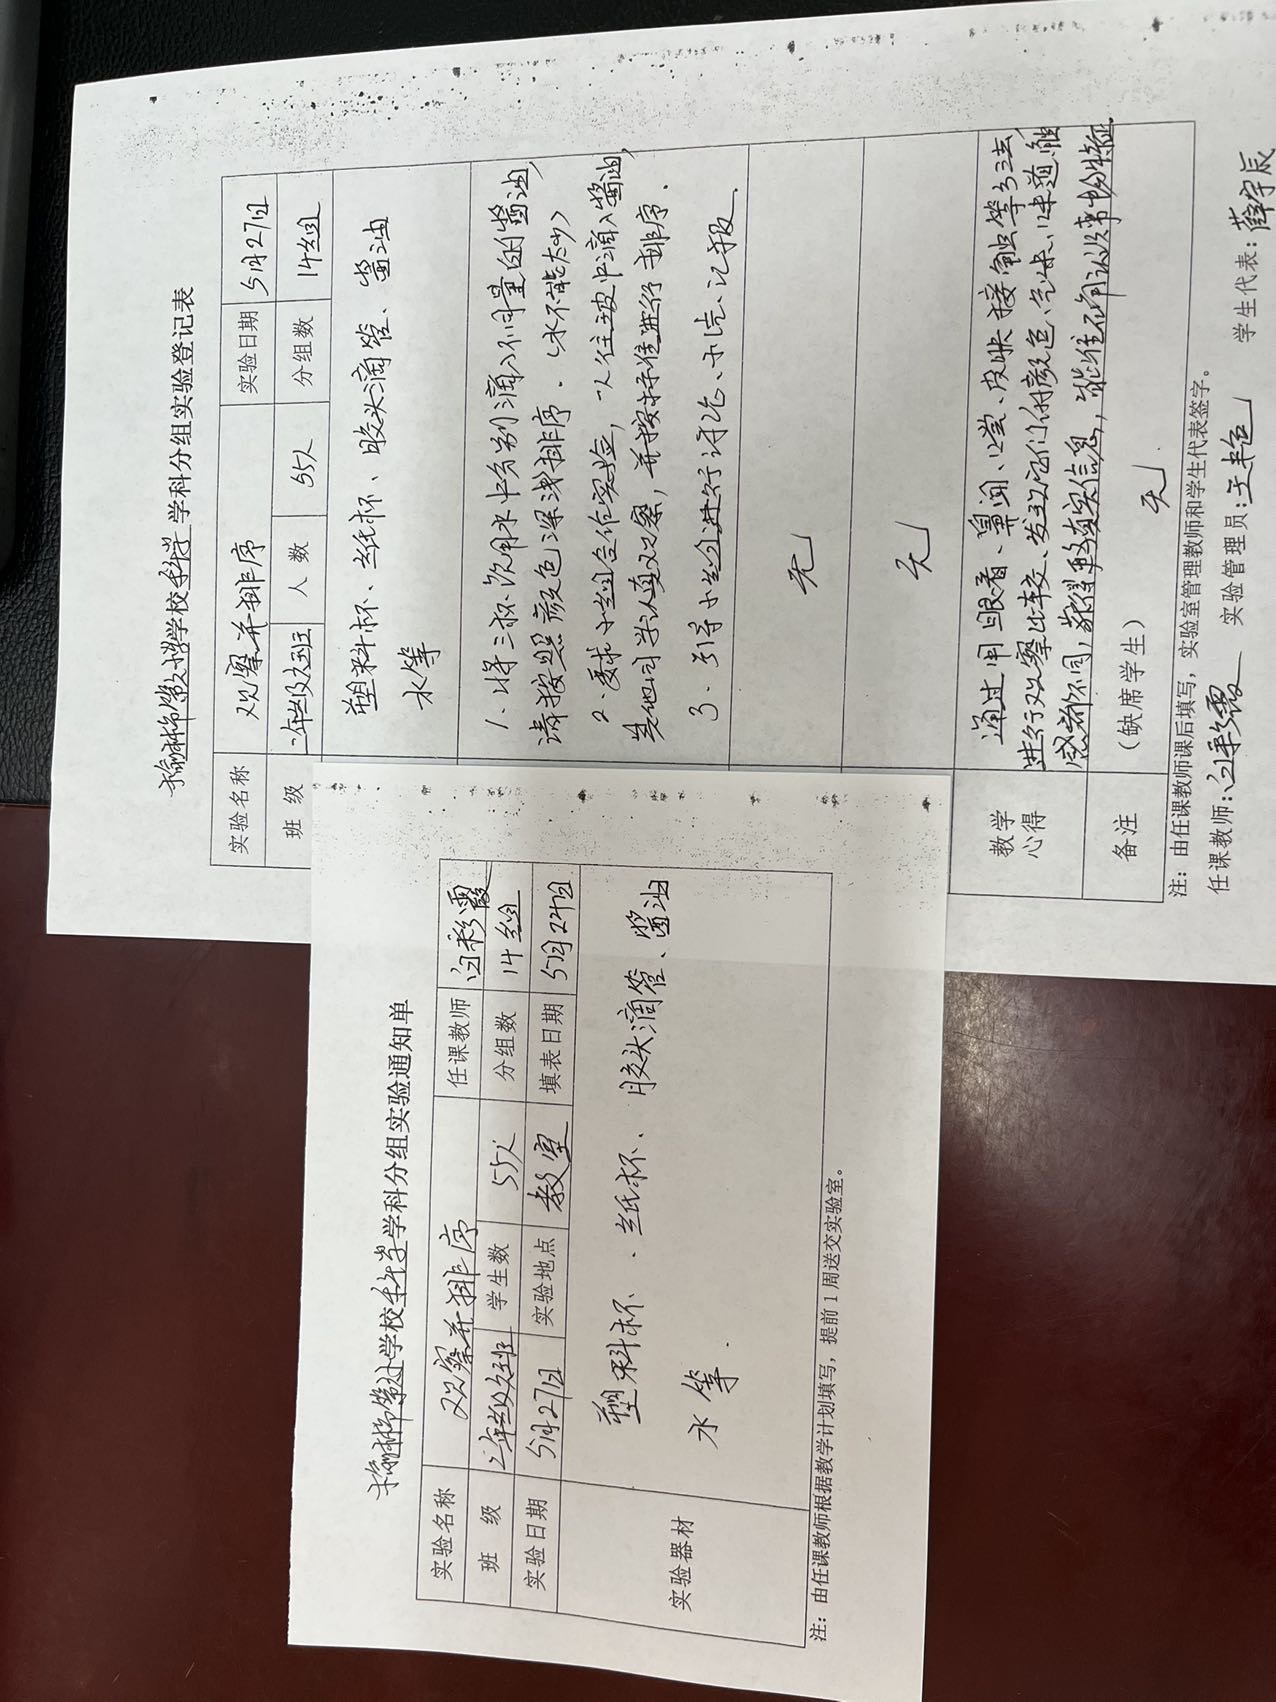 学校科学学科分组实验登记表
实验名称 观察并排序 实验日期 5月27日
班 级 二年级 班 人 数 55人 分组数 14组
塑料杯、纸杯、胶头滴管、酱油
水等
1.将三杯饮用水中分别滴入不同量的酱油,
请按照颜色深浅排序.(水不能太少)
2.要求小组合作实验,一人往 中滴入酱油,
其他同学认真观察,并按标准进行排序.
3.引导小组进行讨论、小结、汇报.
无
无
教学
心得
通过用眼看、鼻闻、口尝、皮肤接触等方法,
进行观察比较、发现它们的颜色、气味、味道、触
感都不同,获得 真实信息,能准确认识事物特征.
备注 (缺席学生) 无.
注:由任课教师课后填写,实验室管理教师和学生代表签字。
任课教师:白彩霞 实验管理员:王艳 学生代表:薛宇辰
学校科学学科分组实验通知单
实验名称 观察并排序 任课教师 白彩霞
班 级 二年级 班 学生数 55人 分组数 14组
实验日期 5月27日 实验地点 教室 填表日期 5月24日
实验器材
塑料杯、纸杯、胶头滴管、酱油
水等.
注:由任课教师根据教学计划填写,提前1周送交实验室。